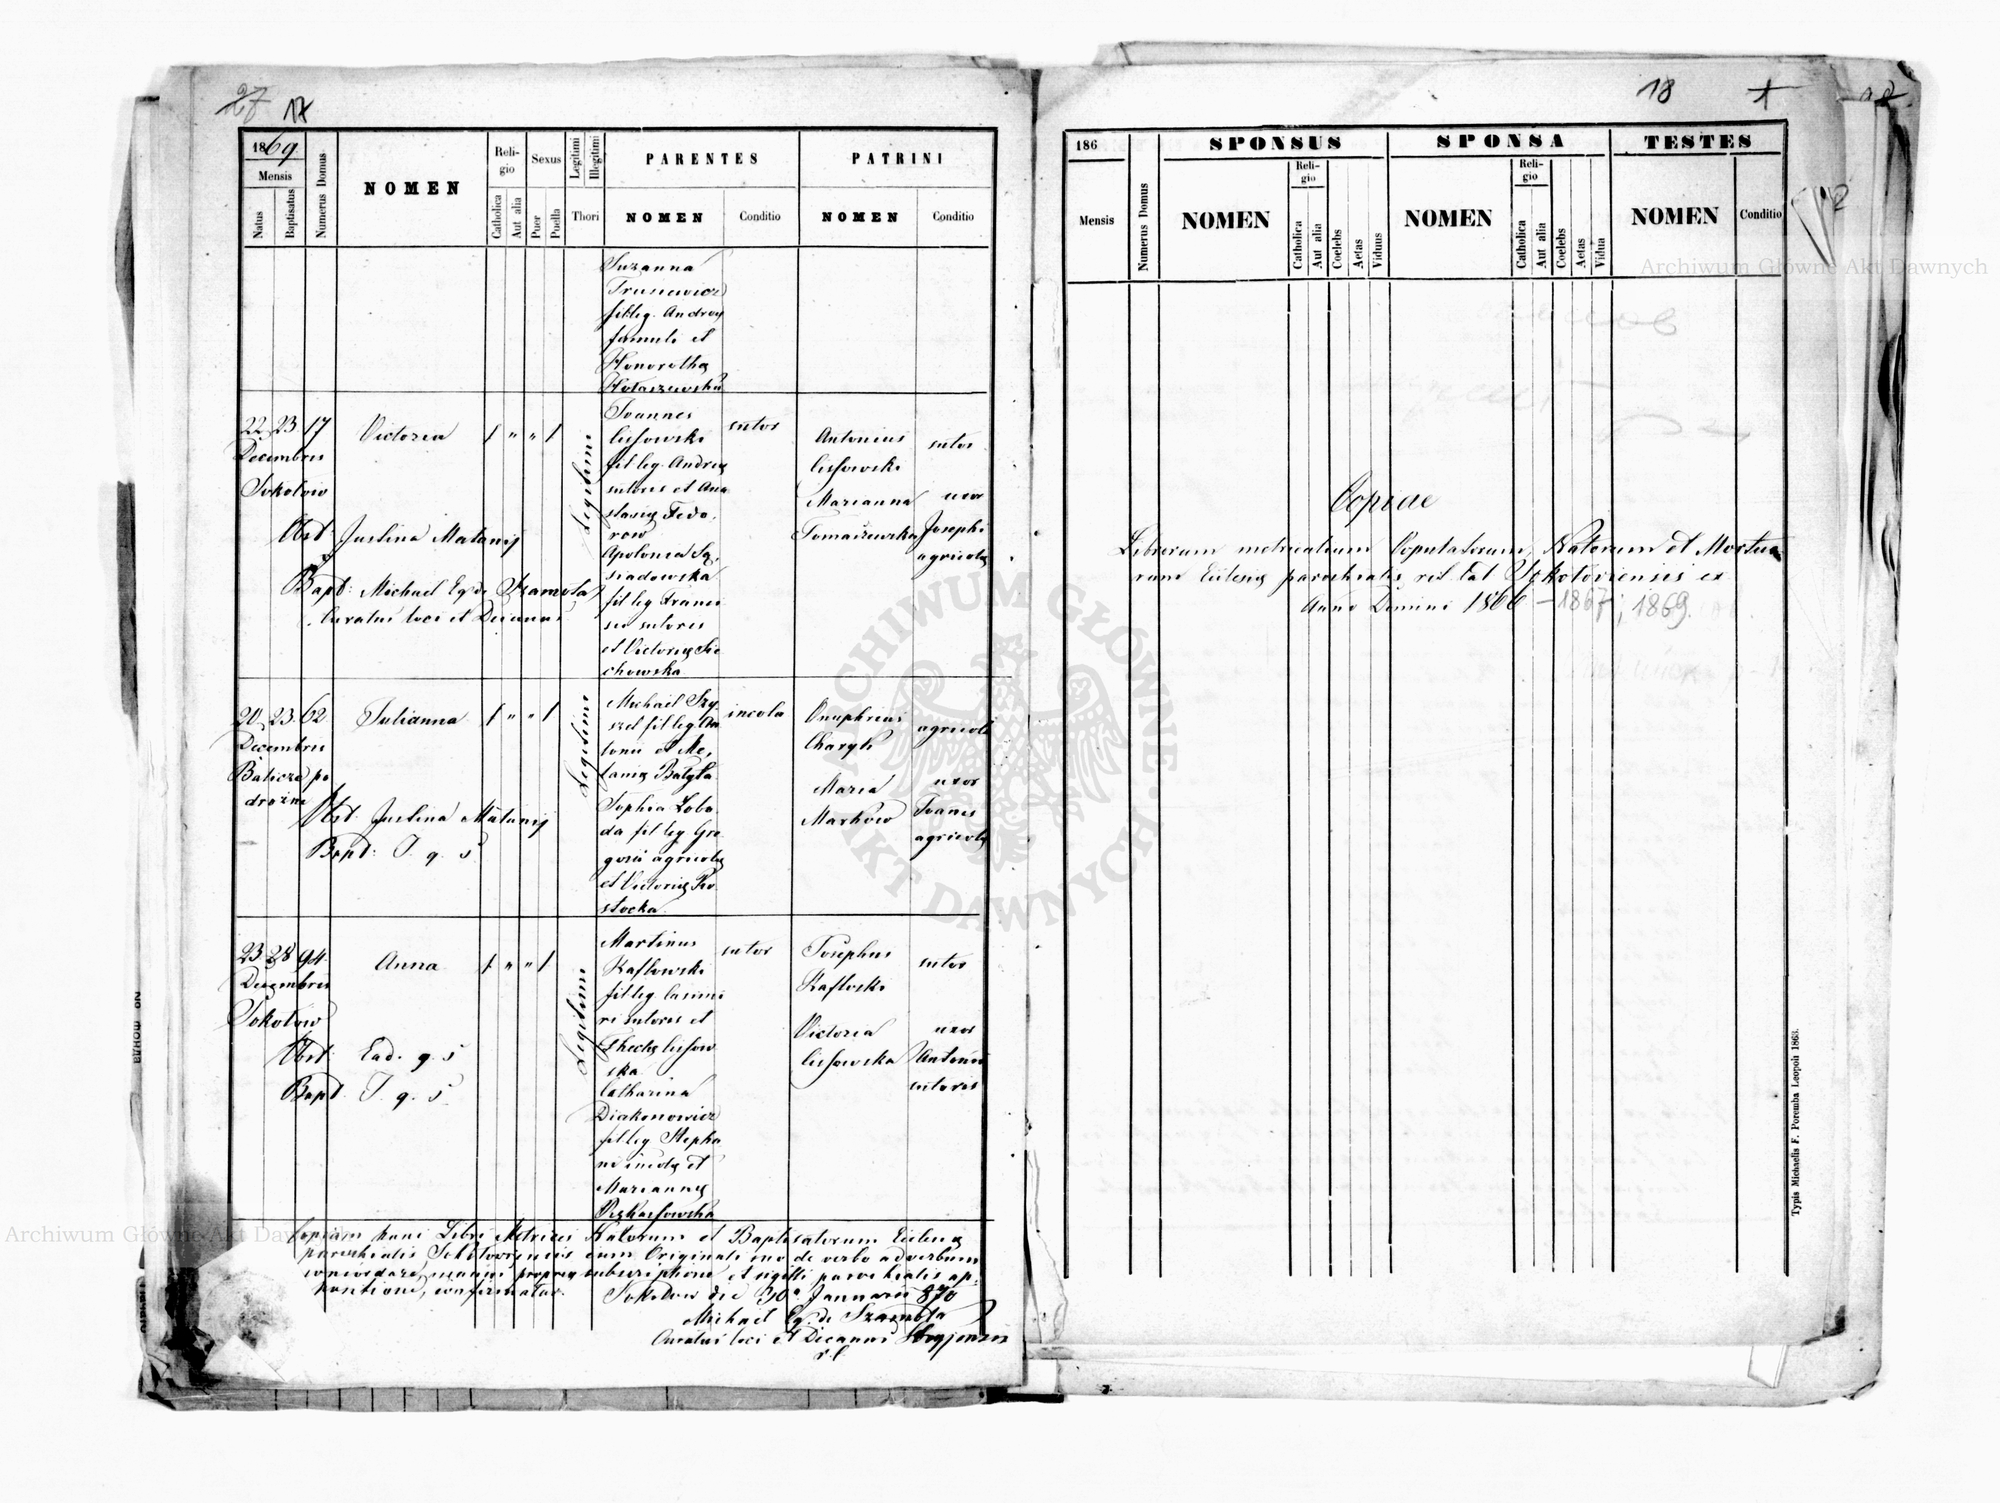 27 17
1869.
Mensis
Natus
Baptisatus
Numerus Domus
NOMEN
Religio
Catholica
Aut alia
Sexus
Puer
Puella
Legitimi
Illegitimi
Thori
PARENTES
NOMEN
Conditio
PATRINI
NOMEN
Conditio
Suzanna
Trusiewicz
fil leg. Andreæ
famuli et
Honorathæ
22 23 17 Victoria 1 " " 1
Decembris
Sokołow
Obst. Justina Matanij
Bapt: Michael Eq. de Szamota
Curatus loci et Decanus
Legitimi
Joannes
Lissowski
fil leg. Andreæ
sutoris et Ana
stasiæ Fedo
row
Apolonia Są
siadowska
fil leg Franci
sci sutoris
et Victoriæ Sie
chowska
sutor
Antonius
Lissowski
sutor
Marianna
Tomaszewska
uxor
Josephi
agricolæ
20 23 62 Julianna 1 " " 1
Decembris
Babicze po
drożne
Obst. Justina Matanij
Bapt: I. q. s.
Legitimi
Michael Szy
szel fil leg An
tonii et Me
laniæ Batyła
Sophia Łobo
da fil leg Gre
gorii agricolæ
et Victoriæ Ro
stocka
incola
Onuphrius
Charyk
agricola
Maria
Markow
uxor
Joannis
agricolæ
23 28 94 Anna 1 " " 1
Decembris
Sokołow
Obst: Ead. q. s
Bapt. I. q. s.
Legitimi
Martinus
Kaflowski
fil leg. Casimi
ri sutoris et
Theclæ Lissow
ska
Catharina
Diakonowicz
fil leg Stepha
ni incolæ et
Mariannæ
sutor
Josephus
Kafloski
sutor
Victoria
Lissowska
uxor
Antonii
sutoris
Copiam hanc Libri Metrices Natorum et Baptisatorum Eclesiæ
parochialis Sokołoviensis cum Originali suo de verbo ad verbum
concordare, manus propriæ subscriptione et sigilli parochialis ap-
pensione, confirmatur. Sokołow die 30a Januarii 870
Michael Eq. de Szamota
Curatus loci et Decanus
r. l.
18 1
186
Mensis
Numerus Domus
SPONSUS
NOMEN
Religio
Catholica
Aut alia
Coelebs
Aetas
Viduus
SPONSA
NOMEN
Religio
Catholica
Aut alia
Coelebs
Aetas
Vidua
TESTES
NOMEN
Conditio
Copiae
Librorum metricalium Copulatorum, Natorum et Mortuo
rum Eclesiæ parochialis rit. lat Sokołoviensis ex
Anno Domini 1866 - 1867; 1869.
Typis Michaelis F. Poremba Leopoli 1863.
Archiwum Główne Akt Dawnych
ARCHIWUM GŁÓWNE
AKT DAWNYCH
Archiwum Główne Akt Dawnych